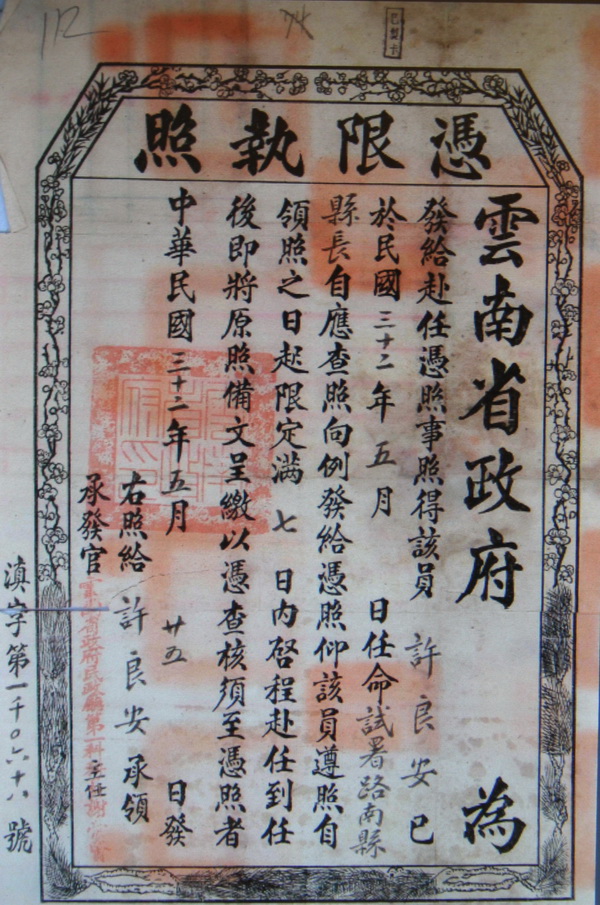 112
74
憑限執照
雲南省政府為
發給赴任憑照事照得該員許良安已
於民國三十二年五月 日任命試署路南縣
縣長自應查照向例發給憑照仰該員遵照自
領照之日起限定滿七日內啓程赴任到任
後即將原照備文呈繳以憑查核須至憑照者
中華民國三十二年五月廿五日發
右照給許良安承領
承發官
雲南省政府民政廳第一科主任謝
滇字第一千〇六十八號